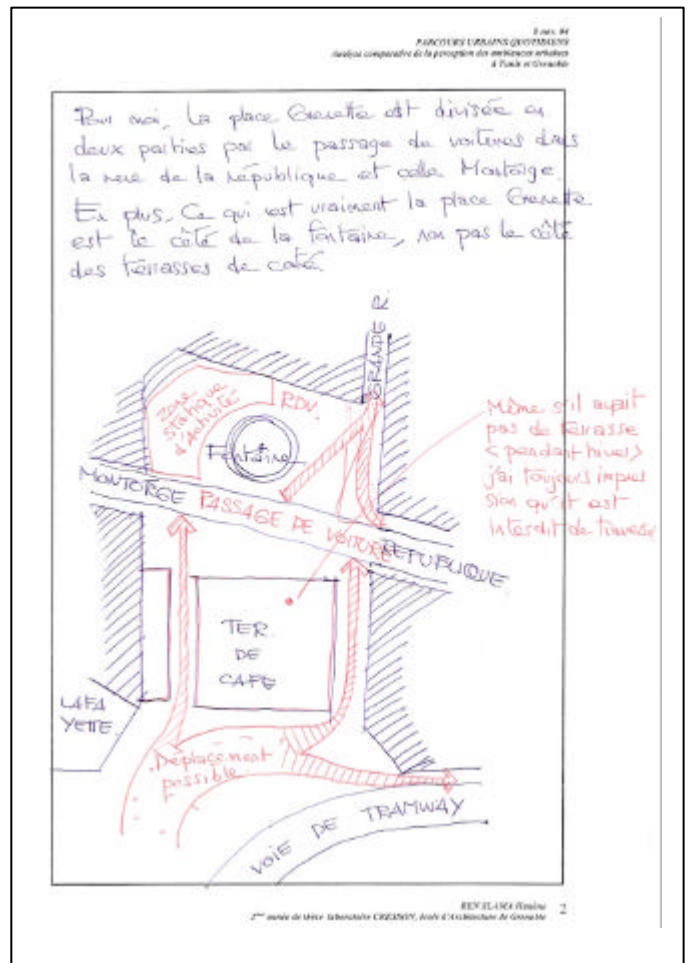 8 nov. 04
PARCOURS URBAINS QUOTIDIENS
Analyse comparative de la perception des ambiances urbaines
à Tunis et Grenoble
Pour moi, la place Grenette est divisée en
deux parties par le passage de voitures dans
la rue de la république et celle Montorge.
En plus, Ce qui est vraiment la place Grenette
est le côté de la fontaine, non pas le côté
des terrasses de café.
GRANDE R.
Zone
statique
d'Activité
RDV.
Fontaine
Même s'il avait
pas de terrasse
< pendant hiver>
j'ai toujours impres
sion qu'il est
interdit de traverse
MONTORGE PASSAGE DE VOITURE REPUBLIQUE
TER.
DE
CAFE
LAFA
YETTE
Déplacement
possible
VOIE DE TRAMWAY
BEN SLAMA Hanène
2ème année de thèse Laboratoire CRESSON, école d'Architecture de Grenoble
2